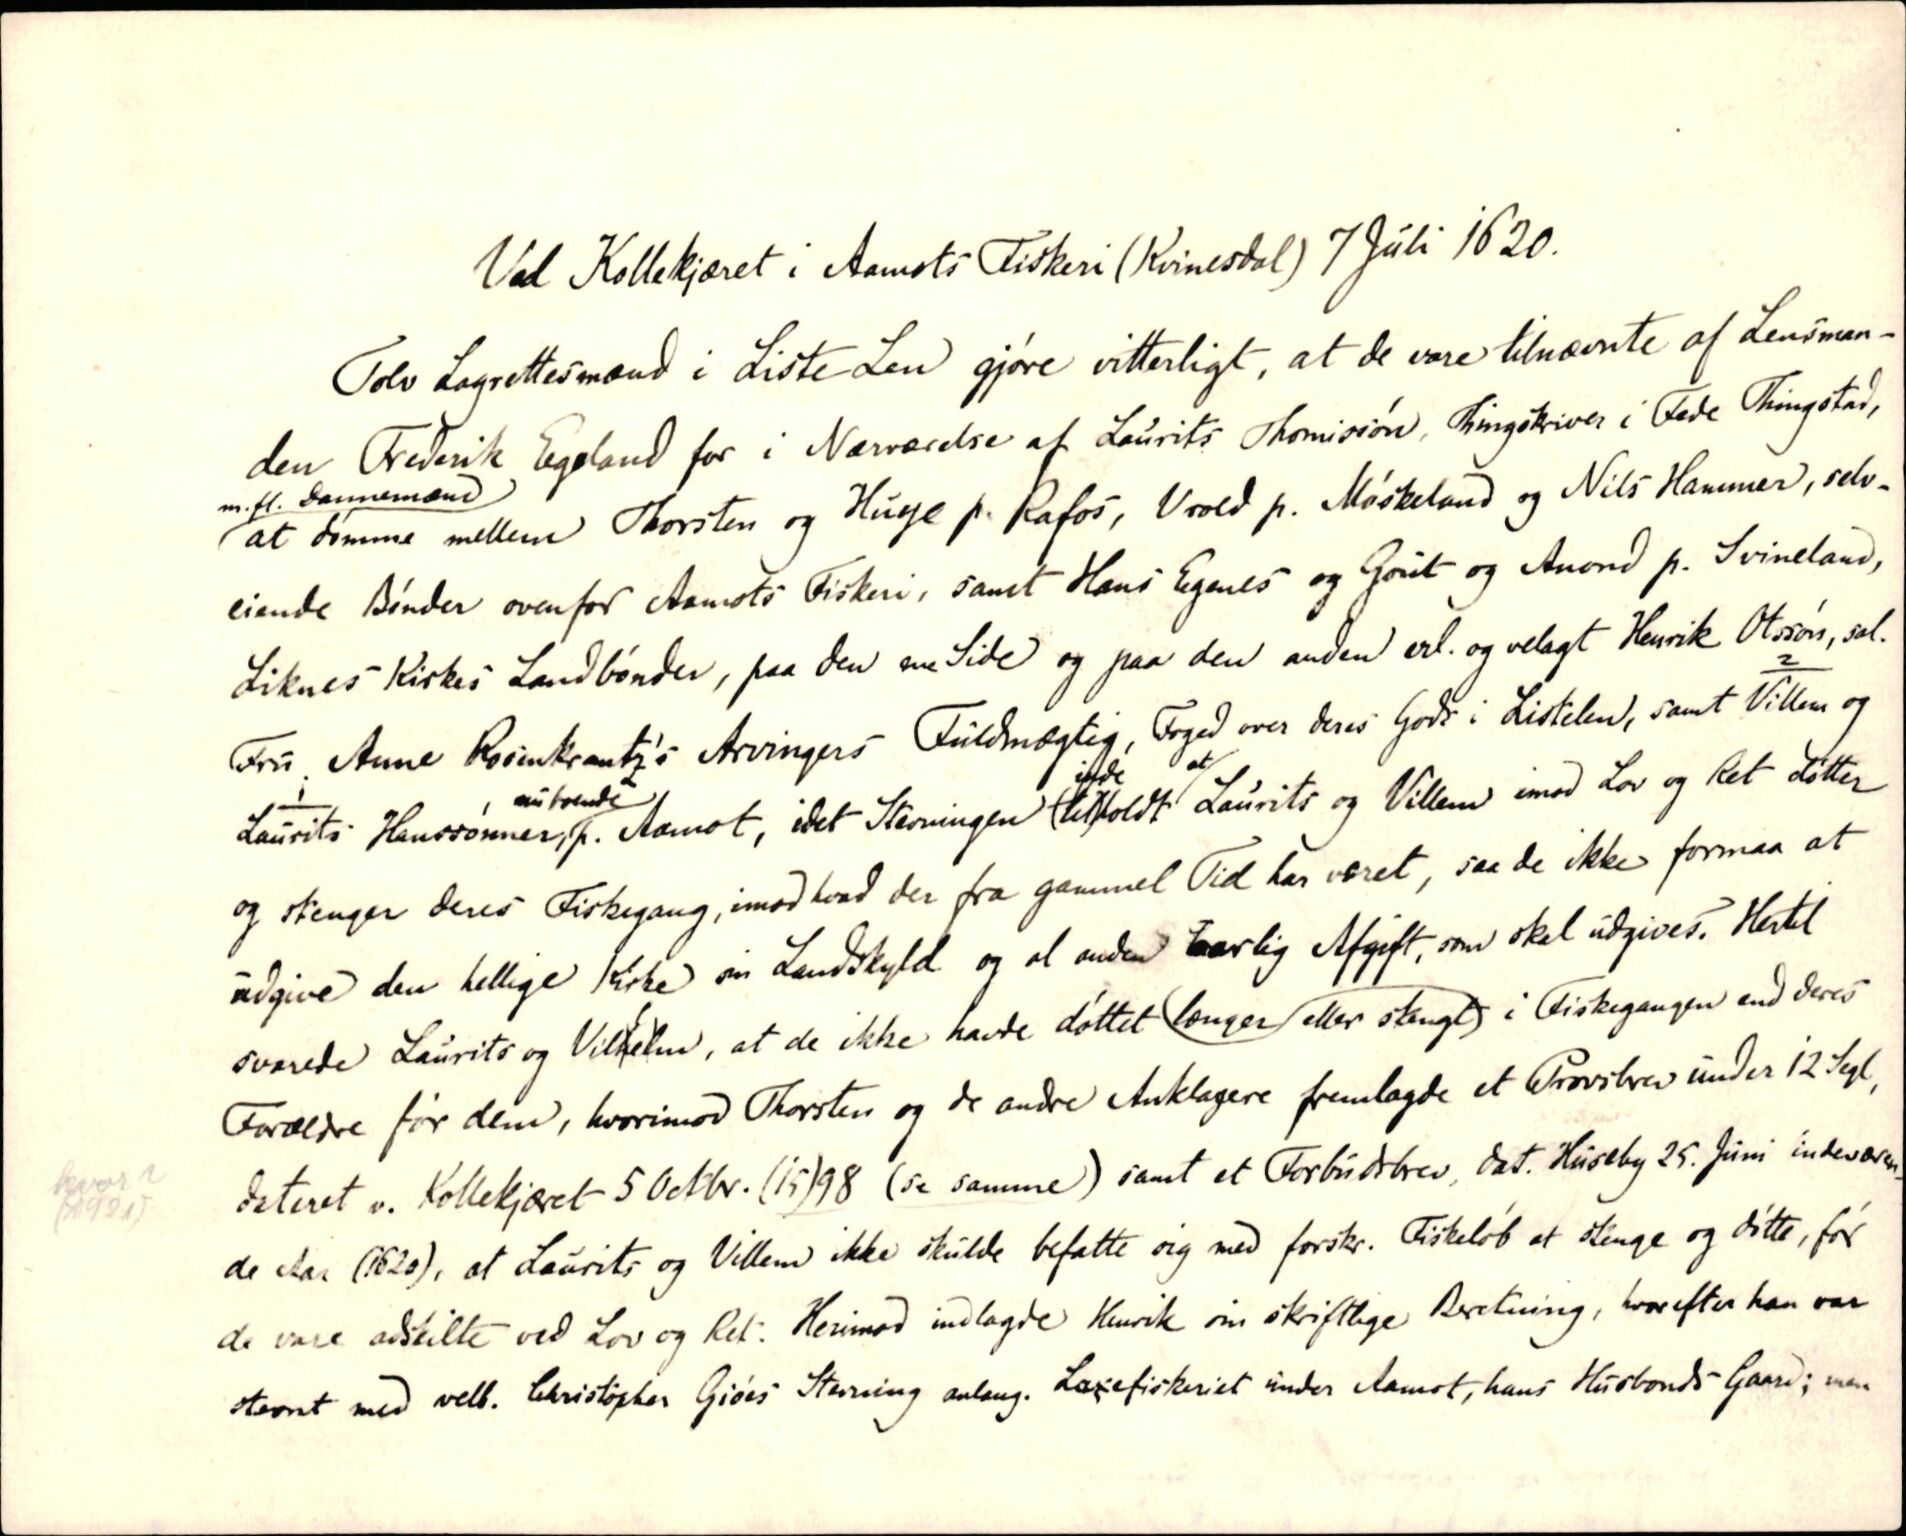 Ved Kollekjæret i Aamots Fiskeri (Kvinesdal) 7 Juli 1620.
Tolv Lagrettesmænd i Liste Len gjøre vitterligt, at de vare tilnævnte af Lensman-
den Frederik Egeland for i Nærværelse af Laurits Thomissøn, Thingskriver i Fede Thingstad,
m. fl. Dannemænd
at dømme mellem Thorsten og Huge p. Rafos, Vrold p. Møskeland og Nils Hammer, selv-
eiende Bønder ovenfor Aamots Fiskeri, samt Hans Egenes og Gout og Anond p. Svineland,
Liknes Kirkes Landbønder, paa den ene Side og paa den anden erl. og velagt Henrik Otssøn, sal.
Fru Anne Rosenkrantz's Arvingers Fuldmægtig, Foged over deres Gods i Listelen, samt 2 Villem og
1 Laurits Hanssønner, nuboende p. Aamot, idet Stevningen inde (til)holdt at Laurits og Villem imod Lov og Ret døtter
og stenger deres Fiskegang, imod hvad der fra gammel Tid har været, saa de ikke formaa at
udgive den hellige Kirke sin Landskyld og al anden aarlig Afgift, som skal udgives. Hertil
svarede Laurits og Vilhelm, at de ikke havde døttet (længer eller stengt) i Fiskegangen end deres
Forældre før dem, hvorimod Thorsten og de andre Anklagere fremlagde et Provsbrev under 12 Segl,
dateret v. Kollekjæret 5 Octbr. (15)98 (se samme) samt et Forbudsbrev, dat. Huseby 25. Juni indeværen-
de Aar (1620), at Laurits og Villem ikke skulde befatte sig med forskr. Fiskeløb at stenge og døtte, før
de vare adskilte ved Lov og Ret. Herimod indlagde Henrik sin skriftlige Beretning, hvorefter han var
stevnt med velb. Christopher Giøes Stevning anlang. Laxefiskeriet under Aamot, hans Husbonds Gaard; men